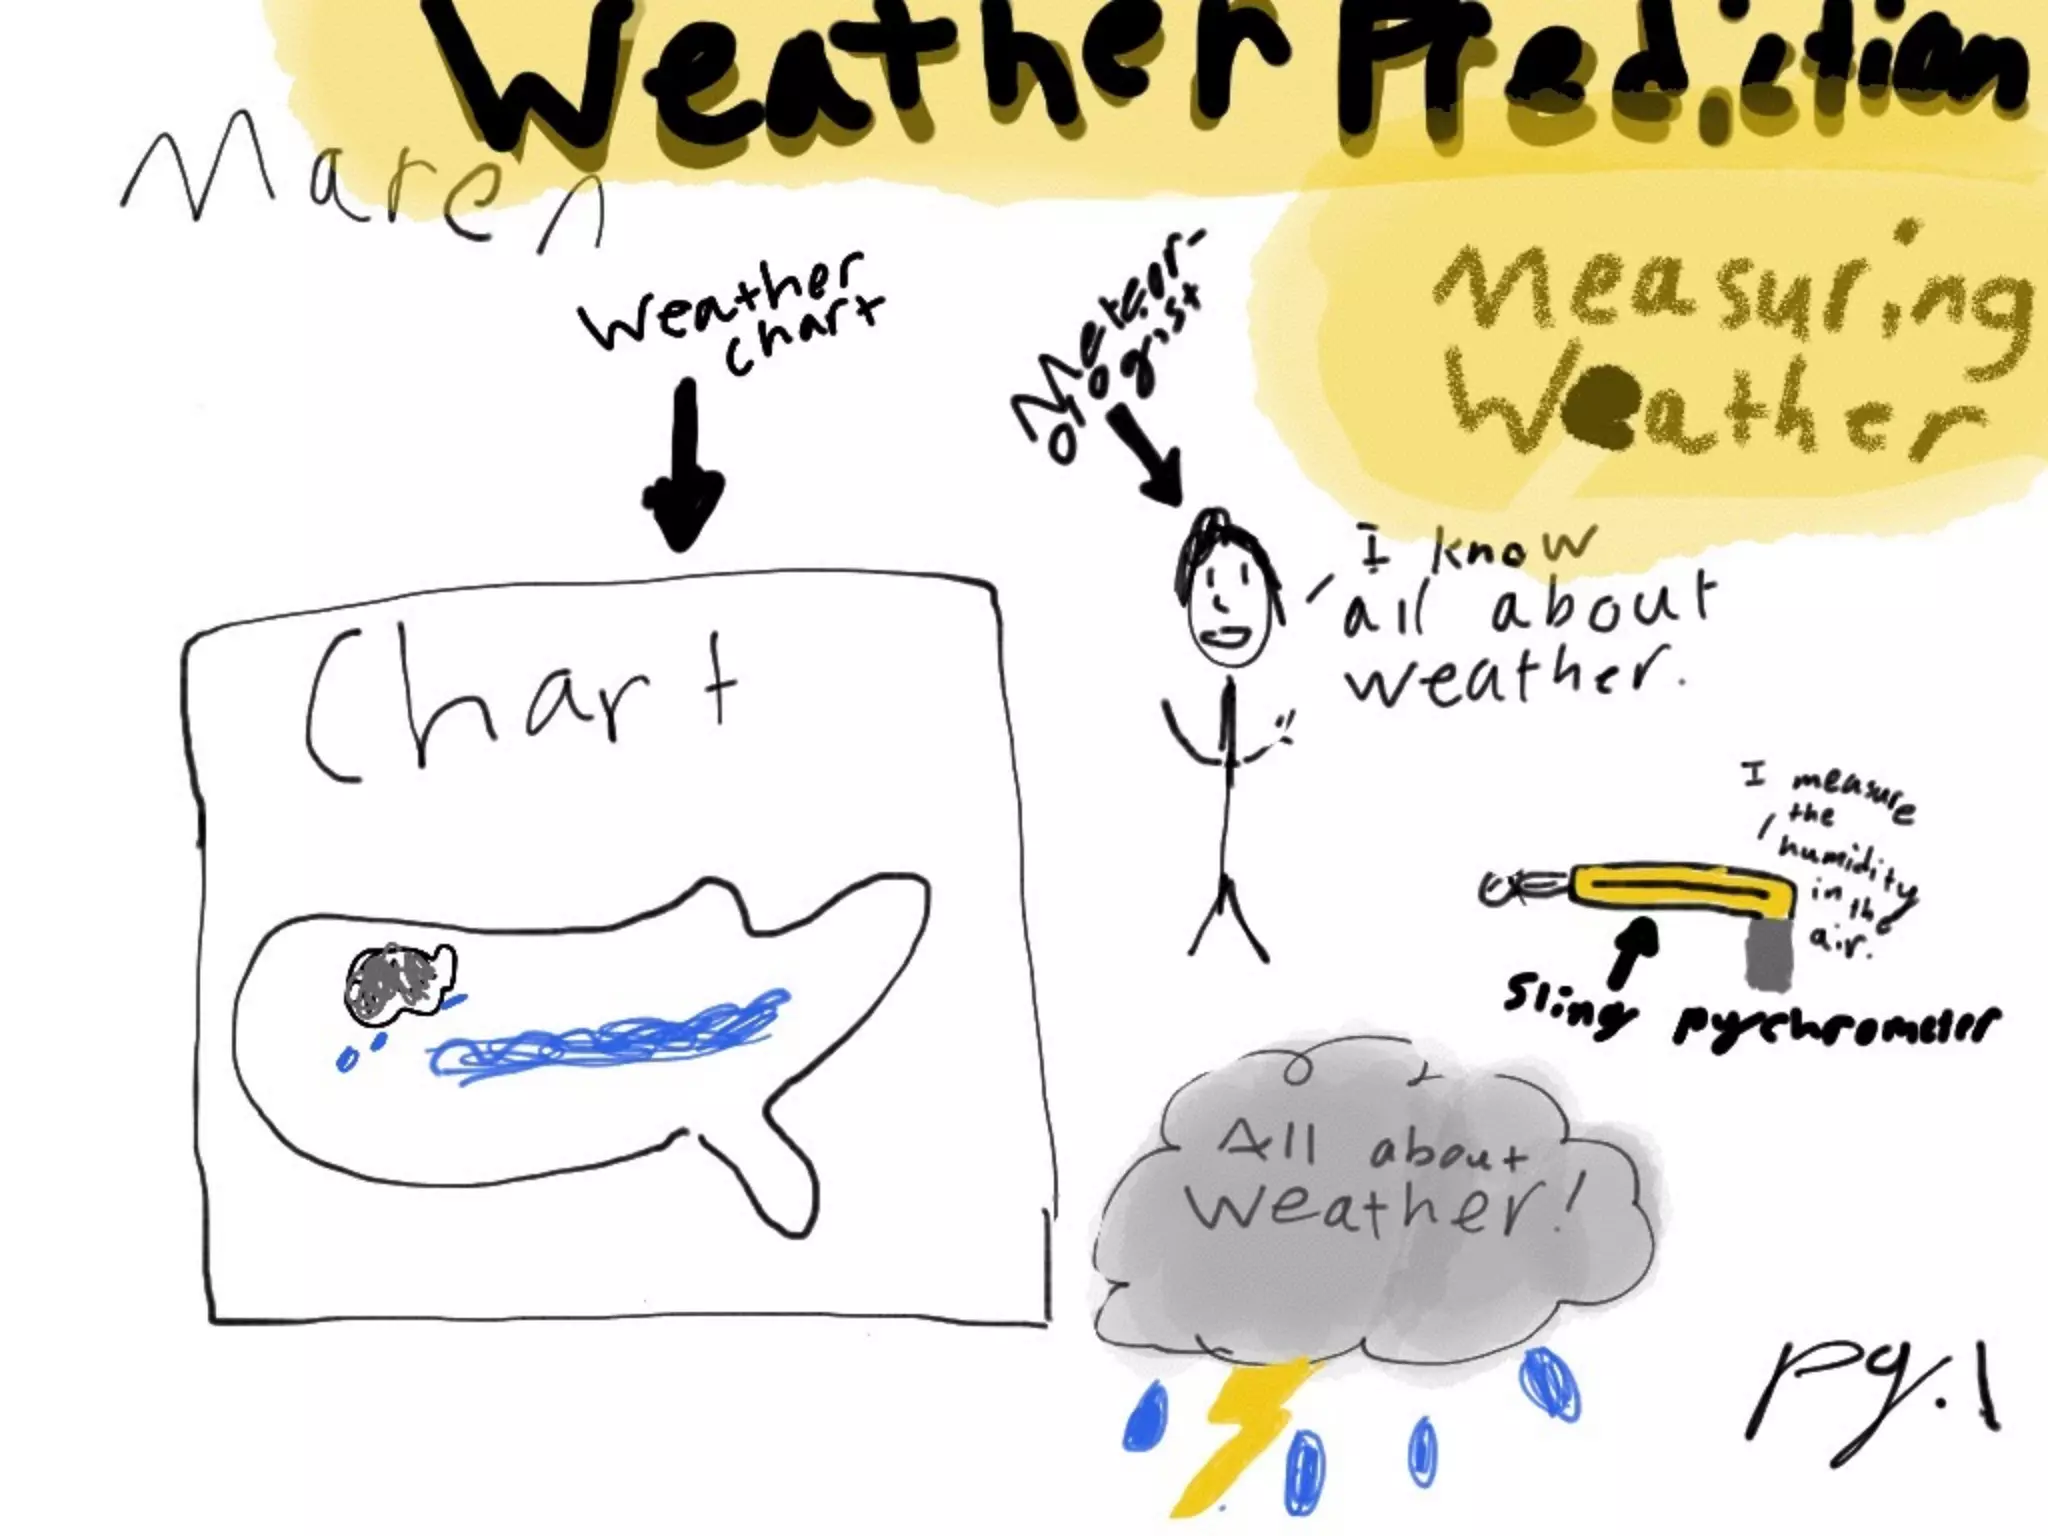 Weather Prediction
Maren
Measuring
Weather
Weather
chart
Meteor-
ologist
I know
all about
weather.
Chart
I measure
the
humidity
in the
air.
Sling pychrometer
All about
Weather!
pg.1